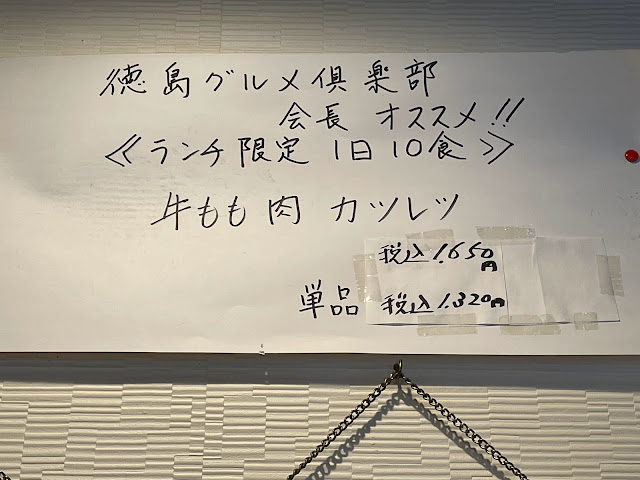 徳島グルメ倶楽部
会長 オススメ!!
≪ランチ限定 1日10食≫
牛もも肉 カツレツ
税込1.650円
単品 税込1.320円